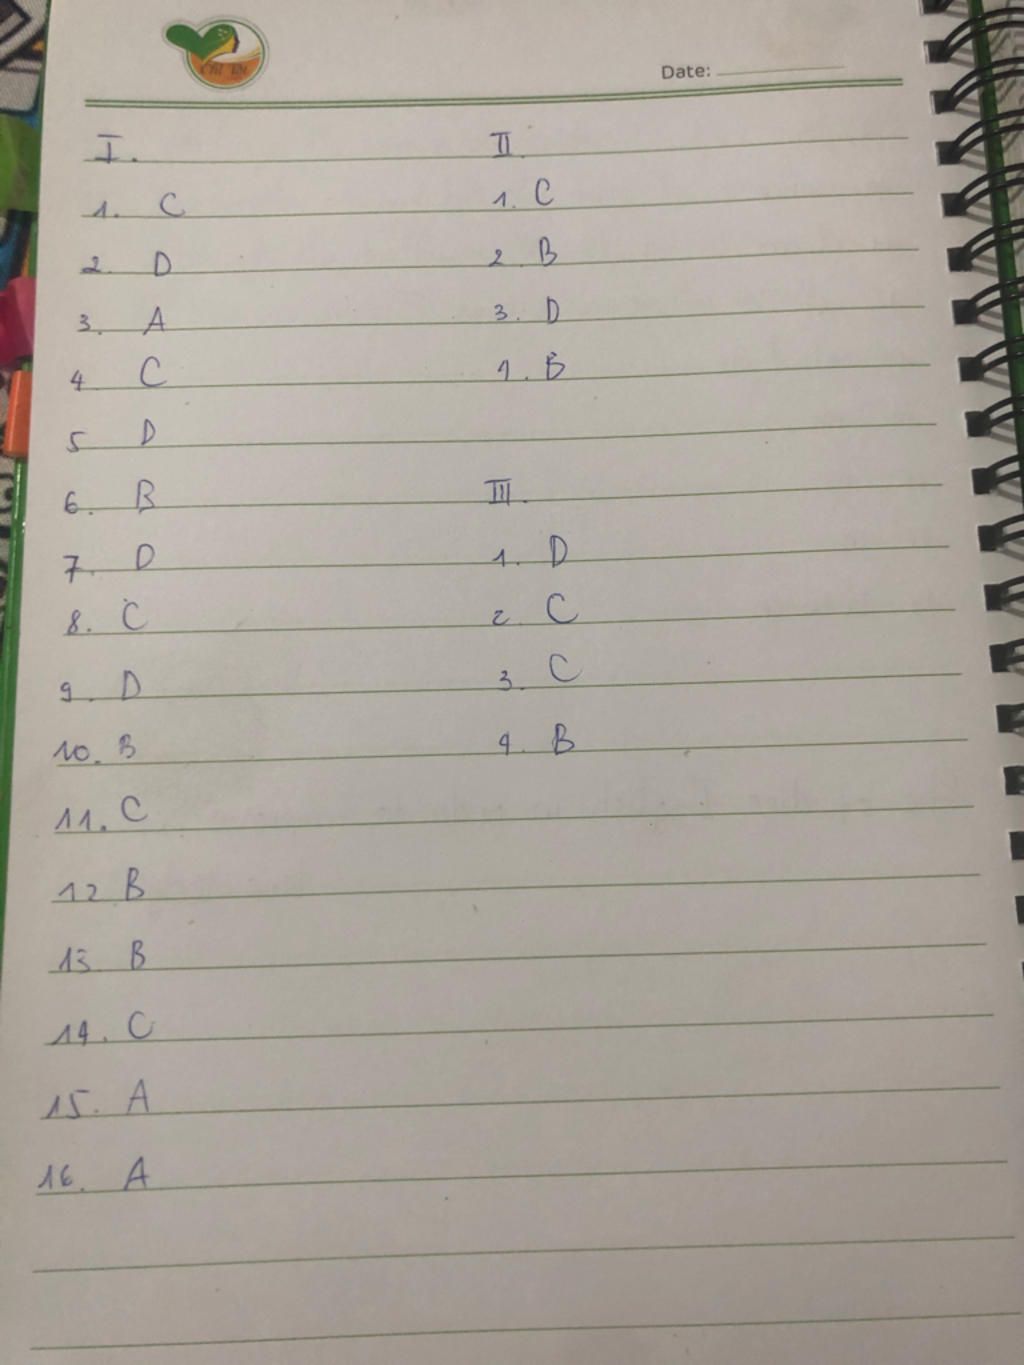 Date:
I.
1. C
2. D
3. A
4. C
5 D
6. B
7. D
8. C
9. D
10. B
11. C
12 B
13. B
14. C
15. A
16. A
II.
1. C
2. B
3. D
4. B
III.
1. D
2. C
3. C
4. B